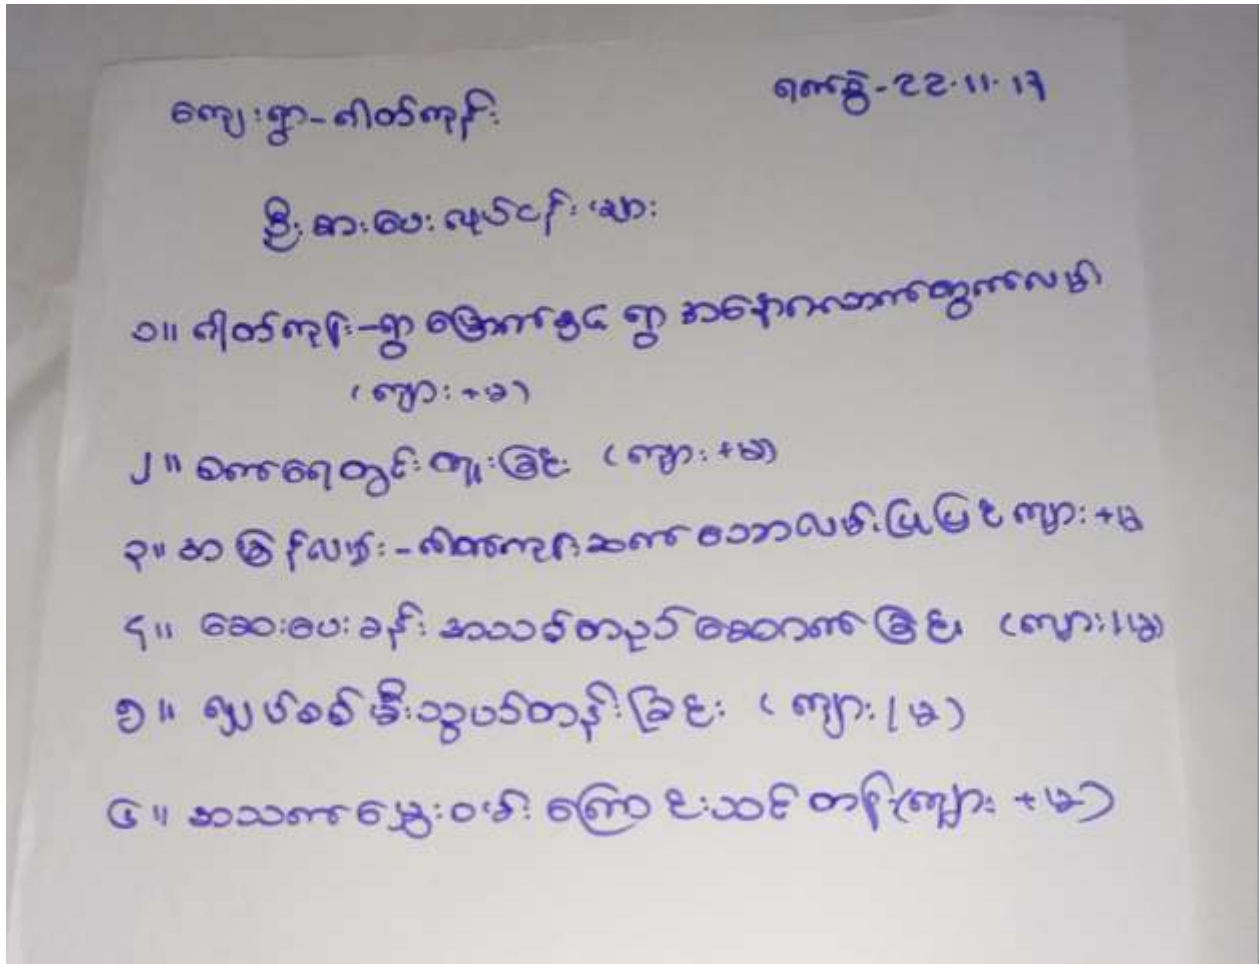 ကျေးရွာ-ဓါတ်ကုန်း
ရက်စွဲ-22.11.17
ဦးစားပေးလုပ်ငန်းများ
၁။ ဓါတ်ကုန်း-ရွာမြောက်နှင့် ရွာအနောက်ဘက်ထွက်လမ်း
(ကျား+မ)
၂။ စက်ရေတွင်းတူးခြင်း (ကျား+မ)
၃။ အမြန်လမ်း-ဓါတ်ကုန်းဆက်သောလမ်းပြုပြင် ကျား+မ
၄။ ဆေးပေးခန်းအသစ်တည်ဆောက်ခြင်း (ကျား/မ)
၅။ လျှပ်စစ်မီးသွယ်တန်းခြင်း (ကျား/မ)
၆။ အသက်မွေးဝမ်းကြောင်းသင်တန်း(ကျား+မ)